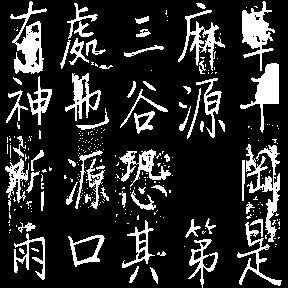 華子岡是
麻源第
三谷恐其
處也源口
有神祈雨